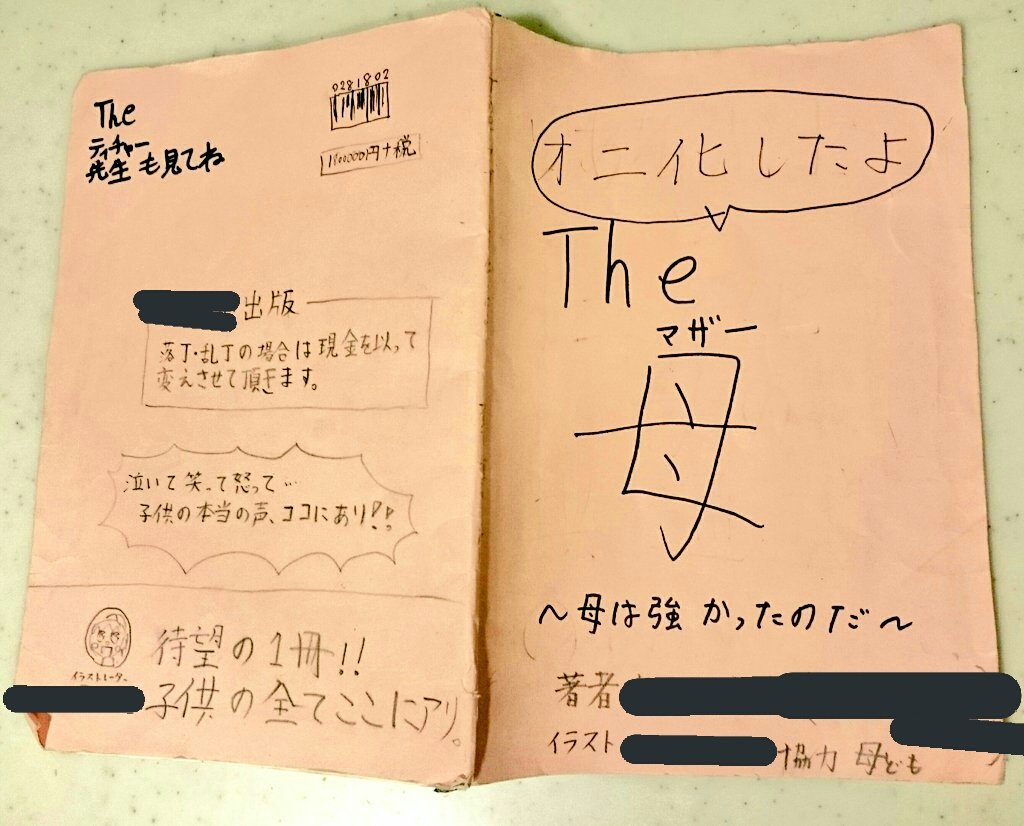 オニ化したよ
The
マザー
母
～母は強かったのだ～
著者
イラスト
協力 母ども
The
ティーチャー
先生も見てね
0281802
円+税
出版
落丁・乱丁の場合は現金を以って
変えさせて頂きます。
泣いて笑って怒って…
子供の本当の声、ココにあり!!
イラストレーター
待望の1冊!!
子供の全てここにアリ。